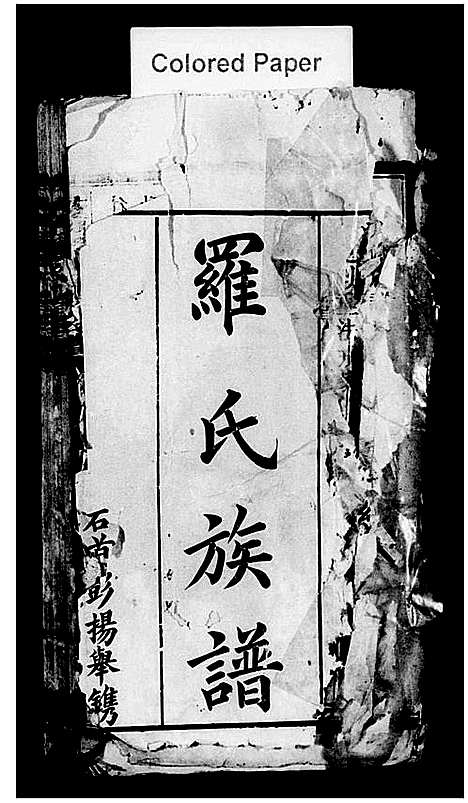 Colored Paper
羅氏族譜
石首彭揚舉鐫